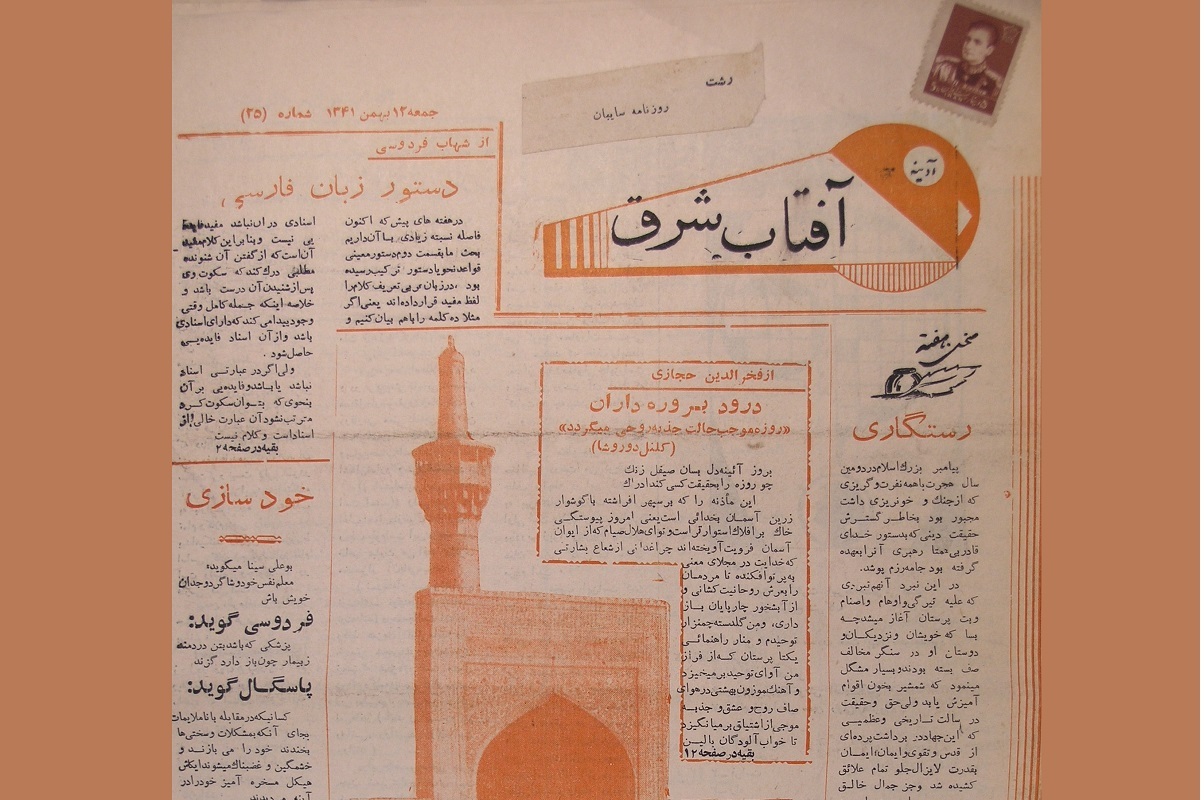 رشت
روزنامه سایبان
جمعه ۱۲ بهمن ۱۳۴۱ شماره (۳۵)
آدینه
آفتاب شرق
از شهاب فردوسی
دستور زبان فارسی
درهفته های پیش که اکنون
فاصله نسبة زیادی با آن داریم
بحث ما بقسمت دوم دستور معینی
قواعد نحو یا دستور ترکیب رسیده
بود، در زبان عربی تعریف کلام را
لفظ مفید قرار داده اند یعنی اگر
مثلا ده کلمه را باهم بیان کنیم و
اسنادی در آن نباشد مفید فایده
یی نیست و بنابر این کلام مفید
آن است که از گفتن آن شنونده
مطلبی درك کند که سکوت وی
پس از شنیدن آن درست باشد و
خلاصه اینکه جمله کامل وقتی
وجود پیدا می کند که دارای اسنادی
باشد و از آن اسناد فایده یی
حاصل شود .
ولی اگر در عبارتی اسناد
نباشد یا باشد و فایده یی بر آن
بنحوی که بتوان سکوت کرد
مترتب نشود آن عبارت خالی از
اسناد است و کلام نیست
بقیه در صفحه ۲
سخن هفته
رستگاری
پیامبر بزرك اسلام در دومین
سال هجرت با همه نفرت و گریزی
که از جنك و خونریزی داشت
مجبور بود بخاطر گسترش
حقیقت دینی که بدستور خدای
قادر بی همتا رهبری آنرا بعهده
گرفته بود جامه رزم پوشد.
در این نبرد آنهم نبردی
که علیه تیرگی و اوهام و اصنام
وبت پرستان آغاز میشد چه
بسا که خویشان و نزدیکان و
دوستان او در سنگر مخالف
صف بسته بودند و بسیار مشکل
مینمود که شمشیر بخون اقوام
آمیزش یابد ولی حق و حقیقت
در رسالت تاریخی و عظیمی
که این جهاد در برداشت پرده ای
از قدس و تقوی و ایمان؛ ایمان
بقدرت لایزال جلو تمام علائق
کشیده شد وجز جمال خالق
از فخرالدین حجازی
درود بر روزه داران
«روزه موجب حالت جذبه روحی میگردد»
(کلنل دوروشا)
بروز آئینه دل بسان صیقل زنك
چو روزه را بحقیقت کسی کند ادراك
این مأذنه را که بر سپهر افراشته با گوشوار
زرین آسمان بخدائی است یعنی امروز پیوستگی
خاك بر افلاك استوارتر است و نوای هلال صیام که از ایوان
آسمان فرویت آویخته اند چراغدانی از شعاع بشارتی
که خدایت در مجلای معنی
به پرتو افکنده تا مردمان
را بعرش روحانیت کشانی و
از آبشخور چارپایان باز
داری، ومن گلدسته چمنزار
توحیدم و منار راهنمائی
یکتا پرستان که از فراز
من آوای توحید بر میخیزد
و آهنك موزون بهشتی در هوای
صاف روح و عشق و جذبه
موجی از اشتیاق بر میانگیزد
تا خواب آلودگان بالین
بقیه در صفحه ۱۲
خودسازی
بوعلی سینا میگوید،
معلم نفس خود و شاگرد وجدان
خویش باش
فردوسی گوید:
پزشکی که باشد بتن دردمند
ز بیمار چون باز دارد گزند
پاسگال گوید:
کسانیکه در مقابله با ناملایمات
بجای آنکه بمشکلات و سختی ها
بخندند خود را می بازند و
خشمگین و غضبناك میشوند ایکاش
هیکل مسخره آمیز خود را در
آینه میدیدند